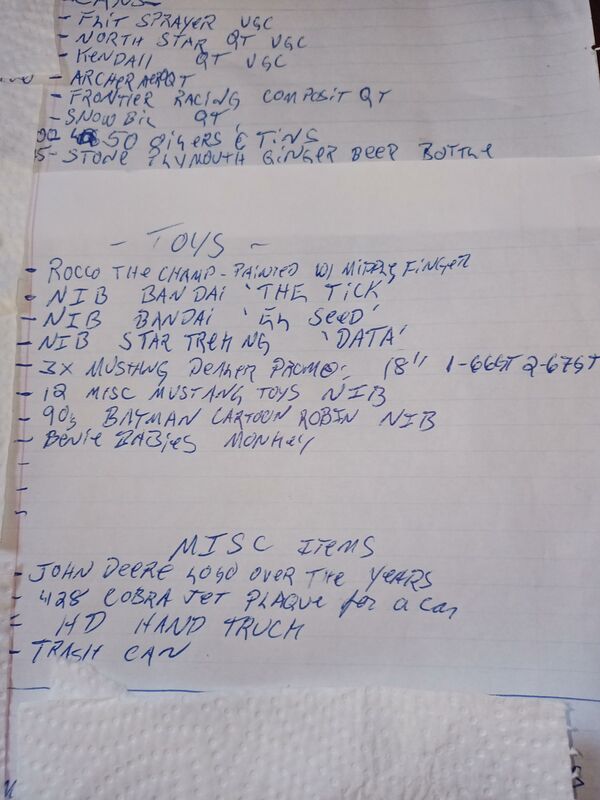 - CANS -
- FLIT SPRAYER VGC
- NORTH STAR QT VGC
- KENDALL QT VGC
- ARCHER QT
- FRONTIER RACING COMPOSIT QT
- SNOW QT
50 OILERS & TINS
5- STONE PLYMOUTH GINGER BEER BOTTLE
- TOYS -
- ROCCO THE CHAMP - PAINTED W/ MIDDLE FINGER
- NIB BANDAI 'THE TICK'
- NIB BANDAI SEED'
- NIB STAR TREK NG 'DATA'
- 3X MUSTANG DEALER PROMO. 18" 1-66ST 2-67ST
- 12 MISC MUSTANG TOYS NIB
- 90s BATMAN CARTOON ROBIN NIB
- BENIE BABIES MONKEY
-
-
-
MISC ITEMS
- JOHN DEERE LOGO OVER THE YEARS
- 428 COBRA JET PLAQUE for a car
- HD HAND TRUCK
- TRASH CAN